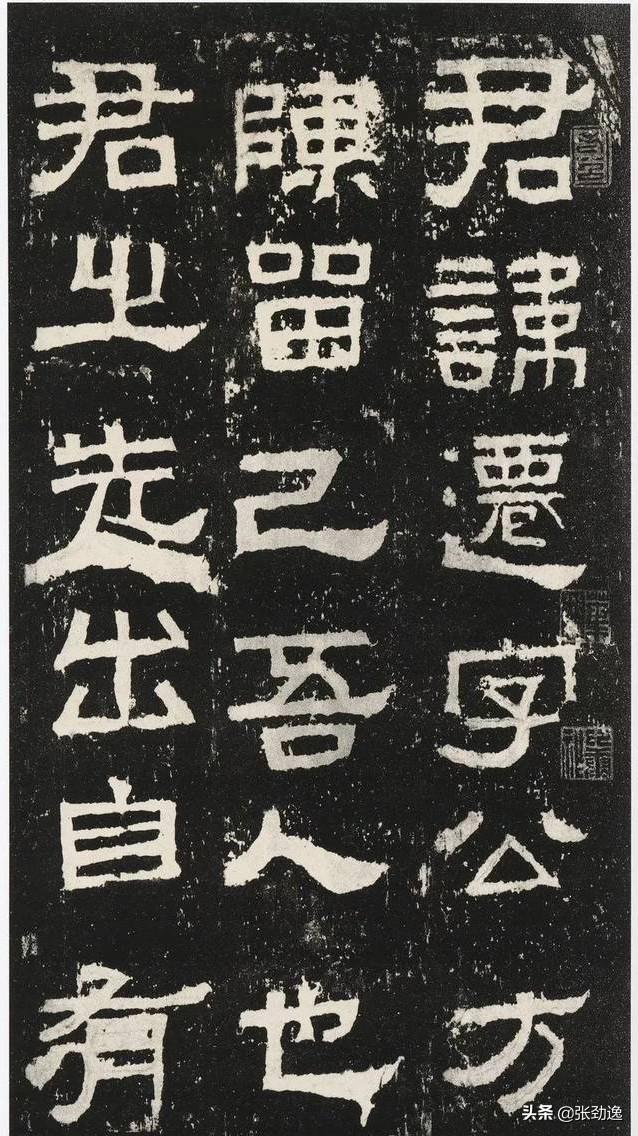 君諱遷字公方
陳留己吾人也
君之先出自有
头条 @张劲逸